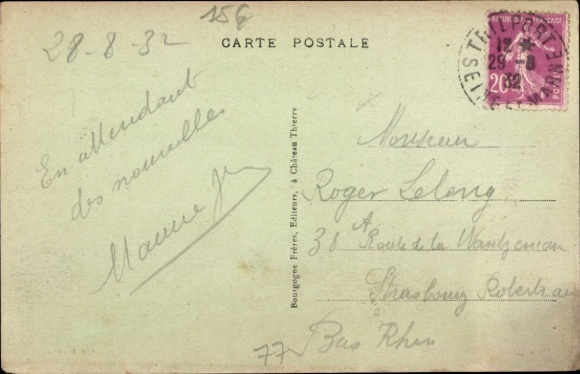 156
28-8-32
CARTE POSTALE
REPUBLIQUE FRANÇAISE
20c
POSTES
ST THILFORT
12 *
29 -8
32
SEINE ET MARNE
En attendant
des nouvelles
Bourgogne Frères, Editeurs, à Château Thierry
Monsieur
Roger Lelong
38 A Route de la Wantzenau
Strasbourg Robertsau
Bas Rhin
77